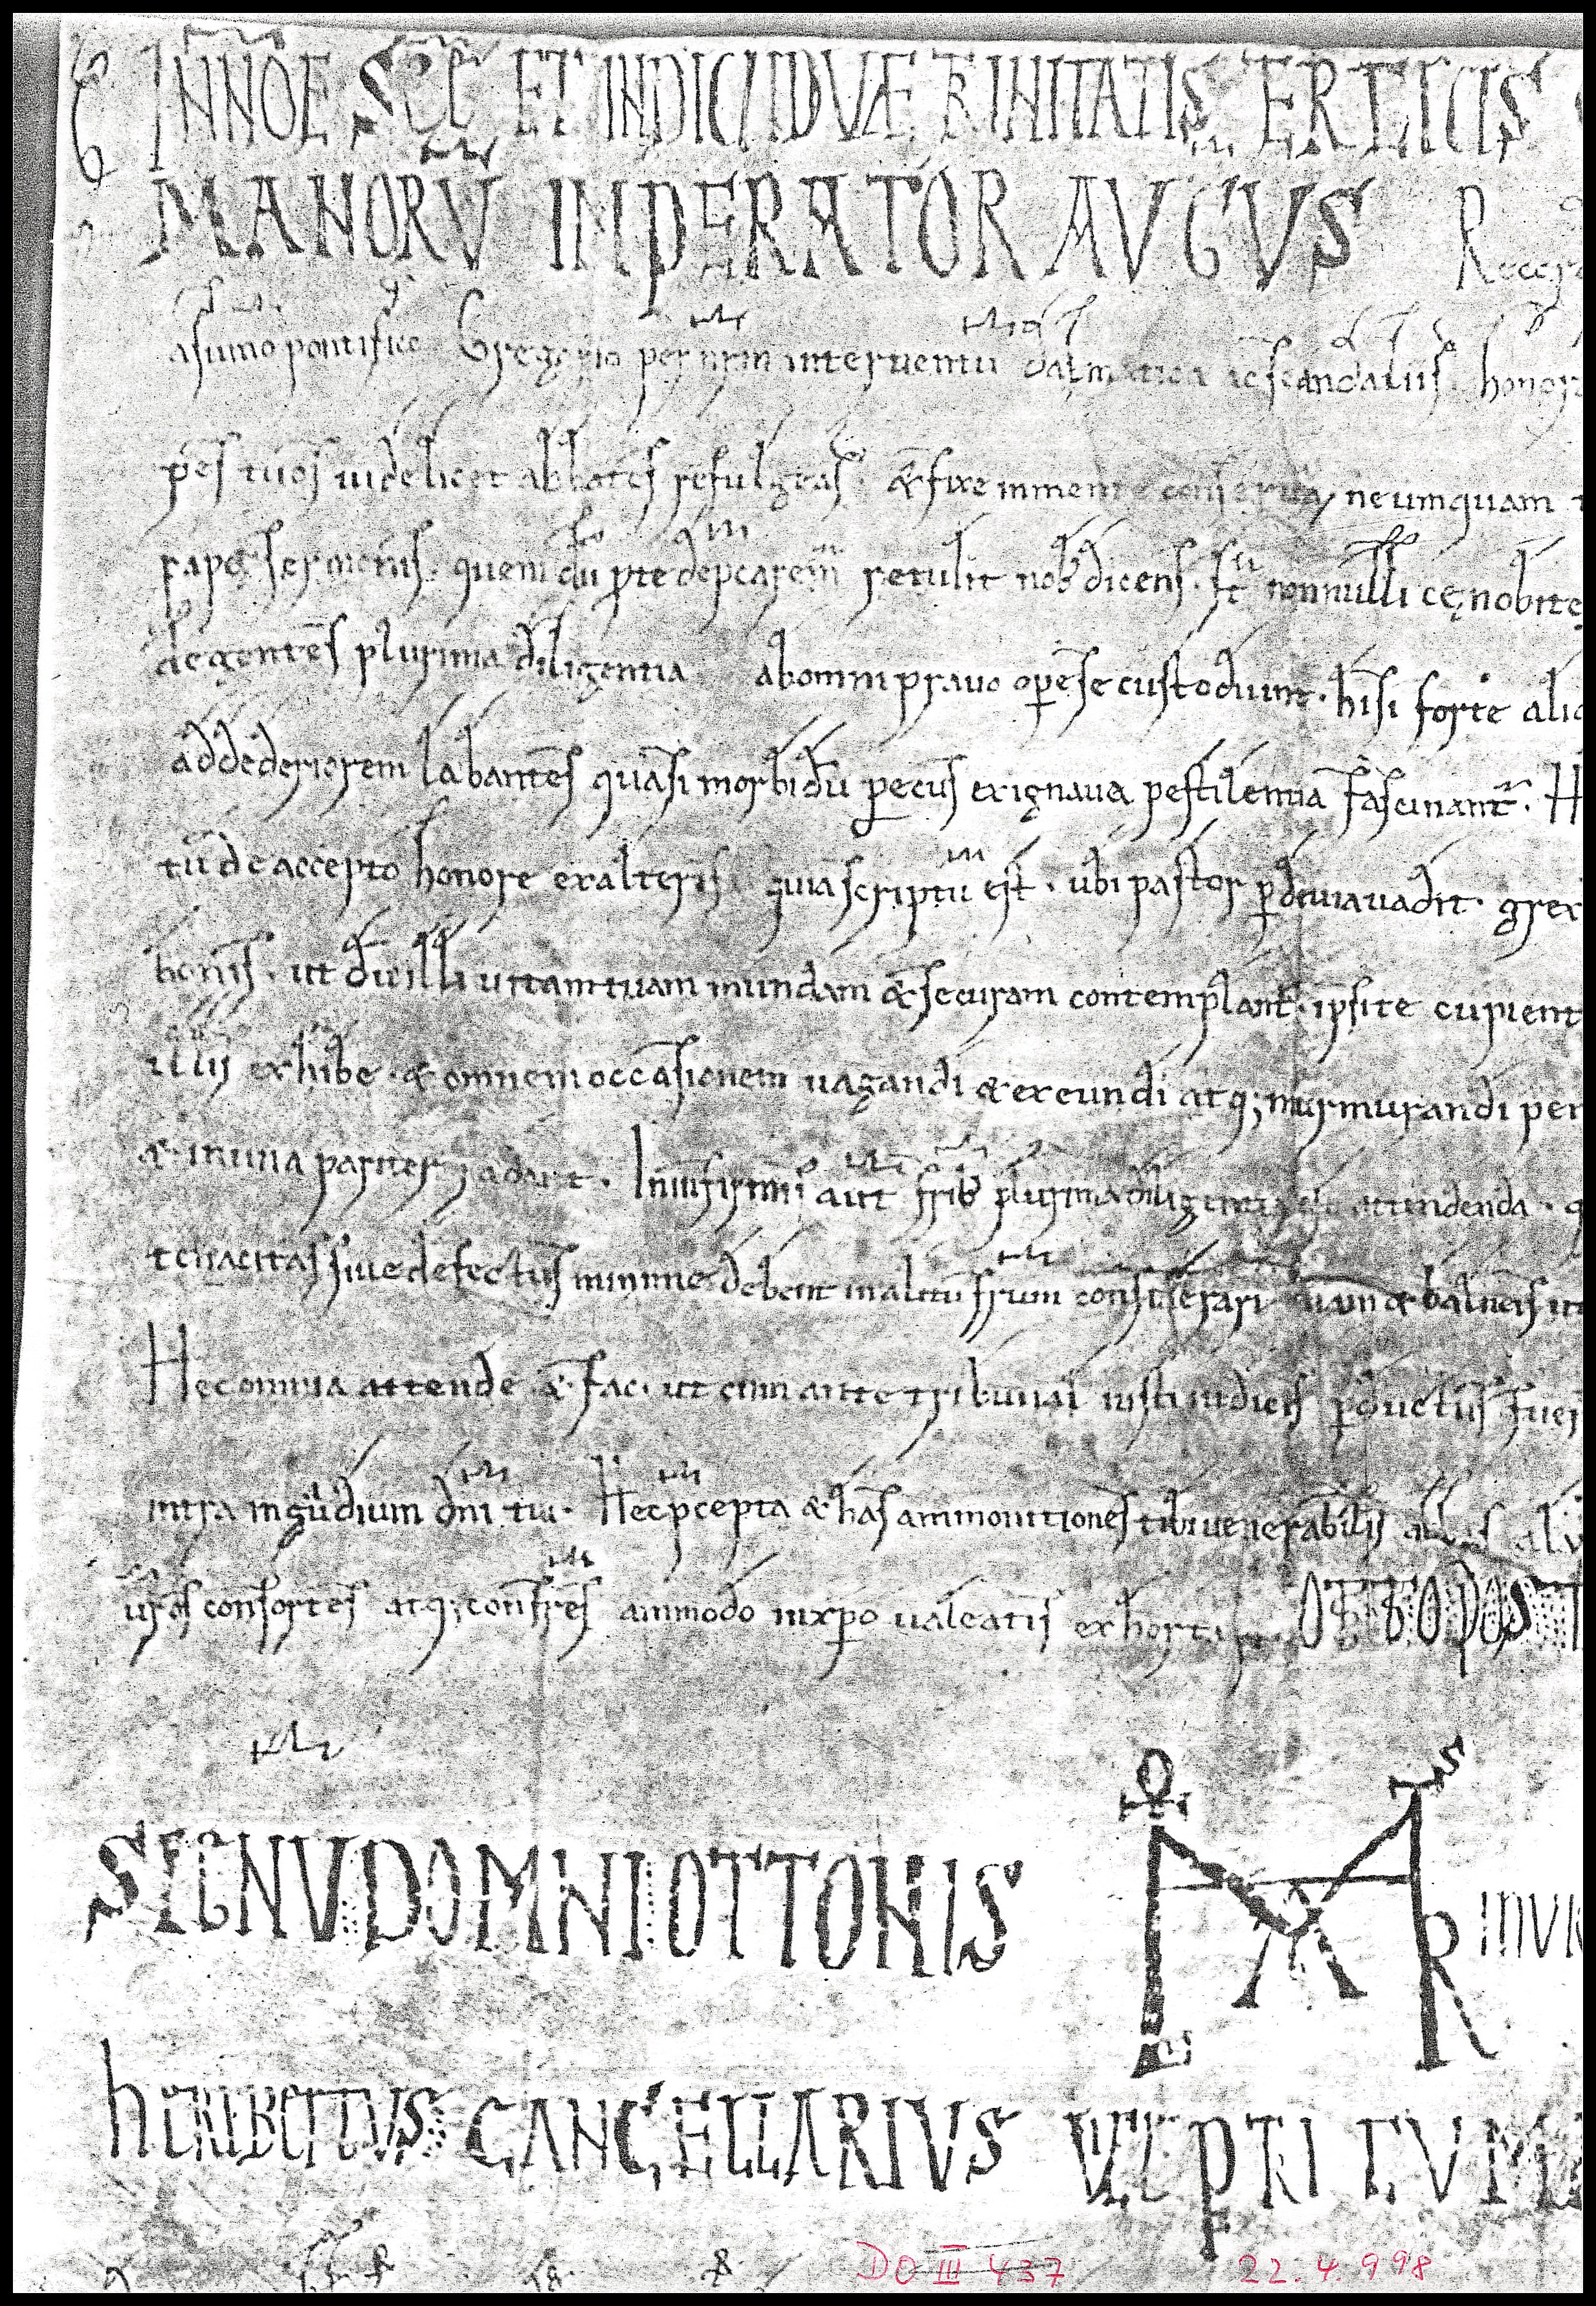 INNOE SCE ET INDIUIDUÆ TRINITATIS TERTIUS
MANORU IMPERATOR AUGUS R
asumo pontifice Gregorio per nrm interventu dalmatica ac scandaliis honor
pes tuos uidelicet abbates refulgeas & fixe in mente conserva ne umquam
sermonis quem du pte depcarem retulit nob dicens st nonnulli cęnobite
degentes plurima diligentia ab omni prauo ope se custodiunt hi si forte aliq
ad dederiorem labantes quasi morbidu pecus ex ignaua pestilentia fascinant H
tu de accepto honore exalteris quia scriptu est ubi pastor p deuia uadit grex
bonis ut du illi uitam tuam mundam & securam contemplant ipsi te cupient
illis exhibe & omnem occasionem uagandi & exeundi atq; murmurandi pen
& in una pariter Infirmis aut frib plurima diligentia attendenda
tenacitas siue defectus minime debent in alitu frum considerari nam & balneis
Hec omnia attende & fac ut cum ante tribunal iusti iudicis pductus fuer
intra in gaudium dni tui Hec pcepta & has ammonitiones tibi uenerabilis
uros consortes atq; confres ammodo in xpo ualeatis exhort OTTO POST
SIGNU DOMNI OTTONIS R INUI
HERIBERTUS CANCELLARIUS UICE PETRI CUMA
DO III 437 22.4.998